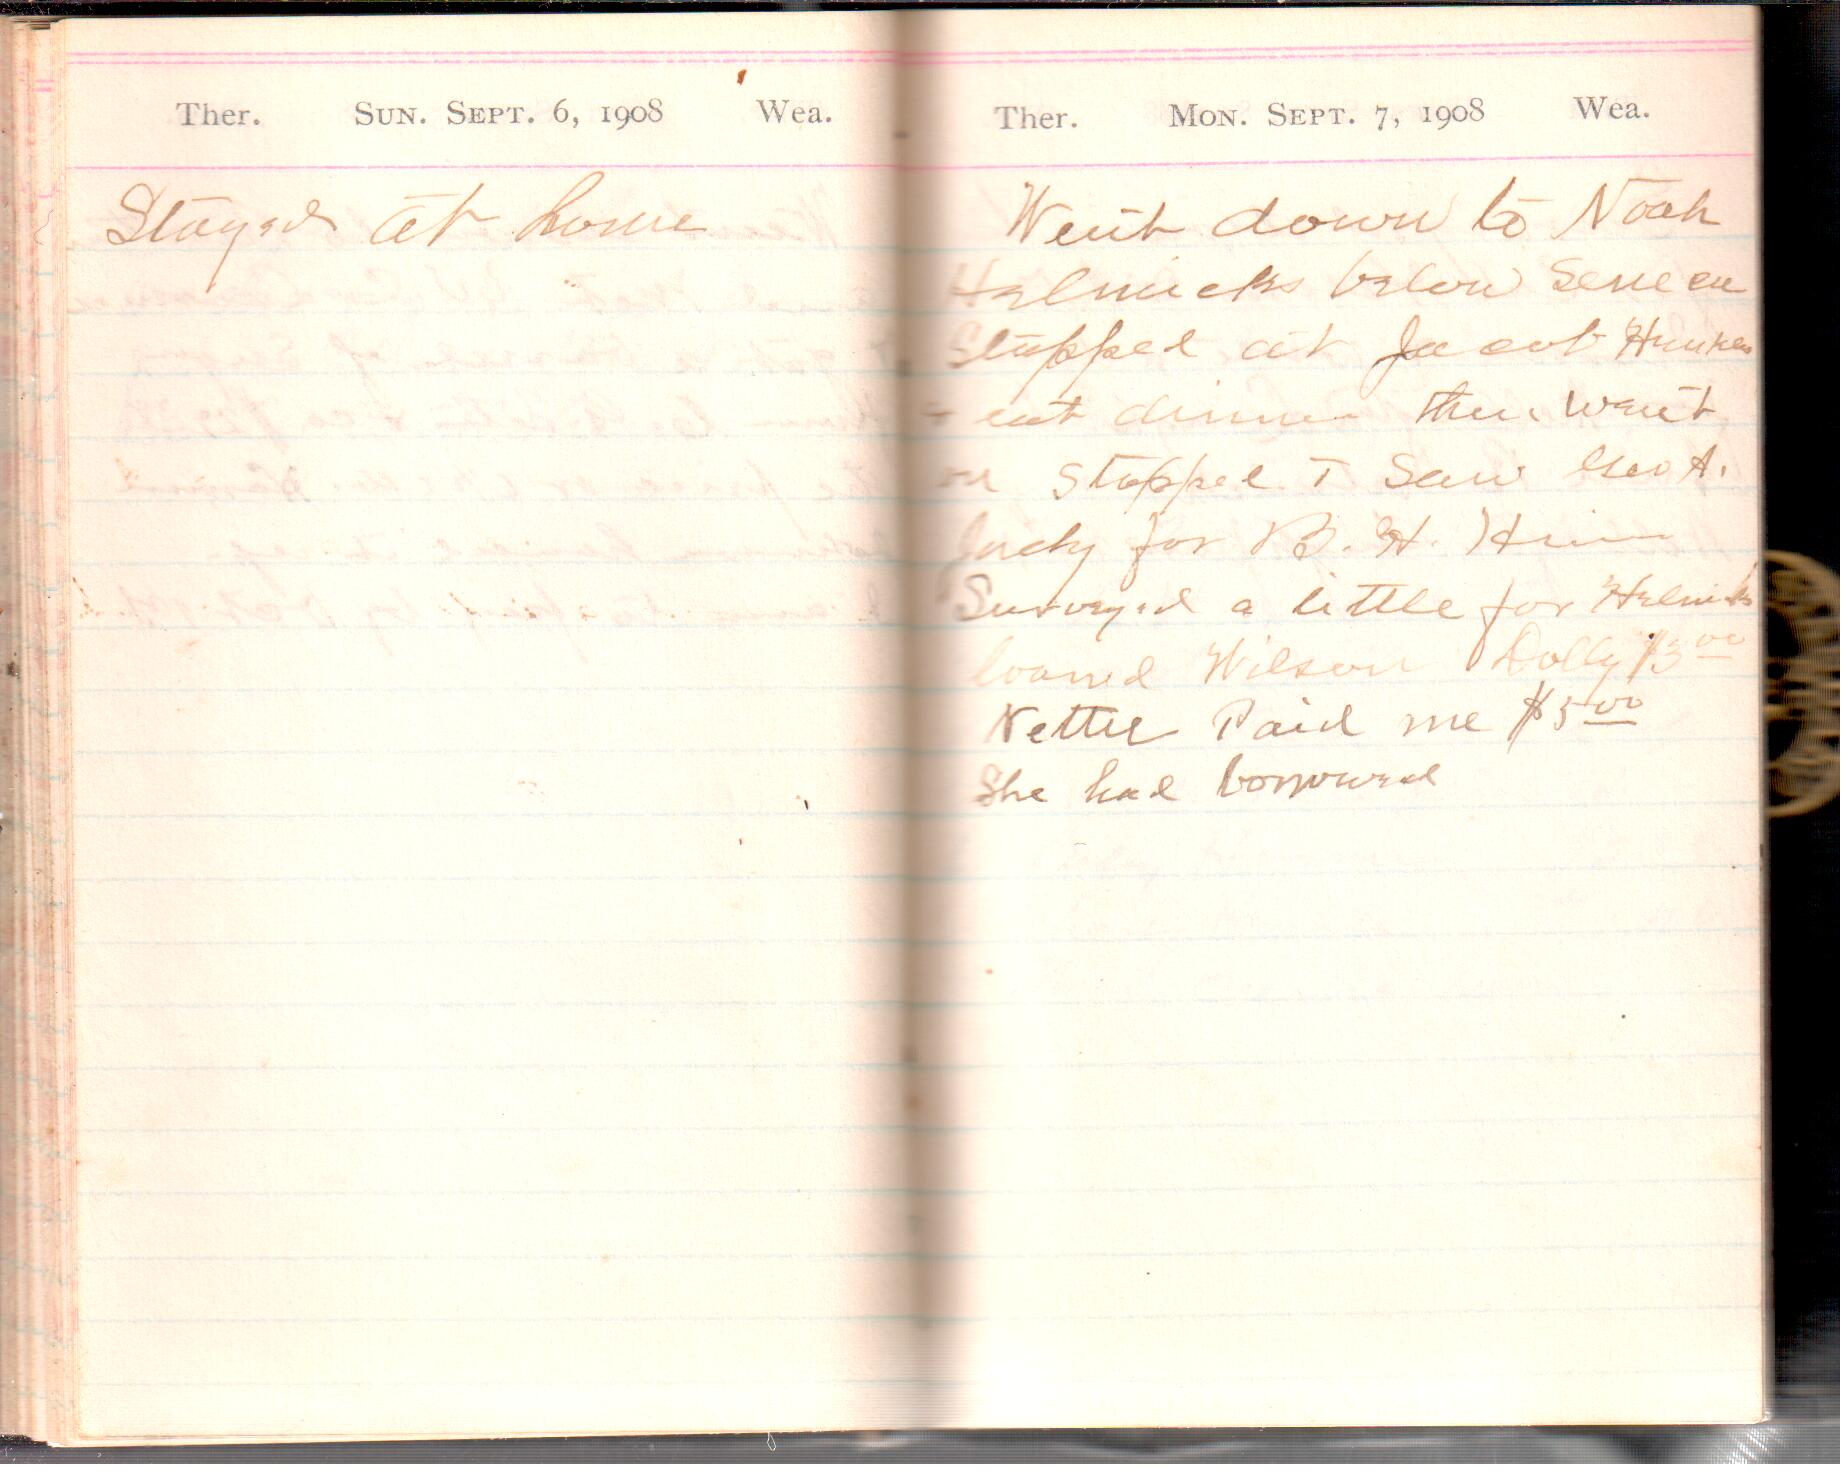 Ther. Sun. Sept. 6, 1908 Wea.
Stayed at home
Ther. Mon. Sept. 7, 1908 Wea.
Went down to Noah
Helmicks below Seneca
Stopped at Jacob
& eat dinner then went
on Stopped & Saw Geo A.
Judy for B. H.
Surveyed a little for Helmicks
loaned Wilson Dolly $3 00
Nettie Paid me $5 00
She had borrowed